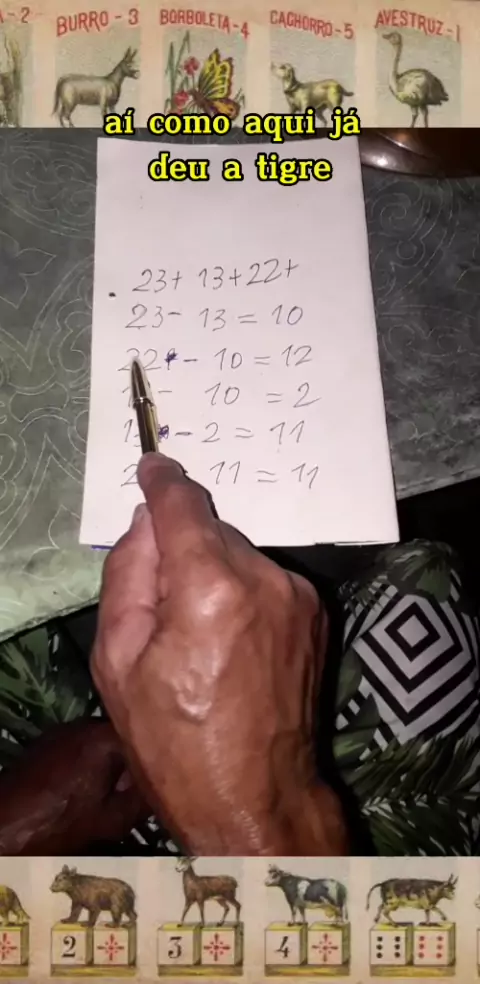 BURRO - 3
BORBOLETA - 4
CACHORRO - 5
AVESTRUZ - 1
aí como aqui já
deu a tigre
23+ 13+22+
23- 13 = 10
22 - 10 = 12
- 10 = 2
- 2 = 11
- 11 = 11
2
3
4